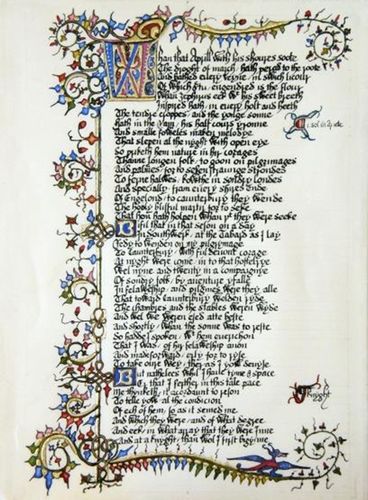 Whan that Aprill with his shoures soote
The droght of march / hath perced to the roote
And bathed every veyne / in swich licour
Of which vertu / engendred is the flour
Whan Zephirus eek with his sweet breeth
Inspired hath in every holt and heeth
The tendre croppes / and the yonge sonne
Hath in the Ram / his half cours yronne
And smale foweles maken melodye
That slepen al the nyght with open eye
So priketh hem nature in hir corages
Thanne longen folk / to goon on pilgrimages
And palmers for to seken straunge strondes
To ferne halwes kowthe in sondry londes
And specially from every shires ende
Of Engelond / to Caunterbury they wende
The hooly blisful martir for to seke
That hem hath holpen whan þt they were seeke
Bifil that in that seson on a day
In Southwerk / at the Tabard as I lay
Redy to wenden on my pilgrymage
To Caunterbury with ful devout corage
At nyght were come in to that hostelrye
Wel nyne and twenty in a compaignye
Of sondry folk / by aventure yfalle
In felaweshipe / and pilgrimes were they alle
That toward Caunterbury wolden ryde
The chambres and the stables weren wyde
And wel we weren esed atte beste
And shortly / whan the sonne was to reste
So hadde I spoken with hem everichon
That I was / of hir felaweshipe anon
And made forward erly for to ryse
To take oure wey / ther as I yow devyse
But nathelees whil I have tyme & space
Er that I ferther in this tale pace
Me thynketh it acordaunt to reson
To telle yow al the condicion
Of ech of hem / so as it semed me
And which they were / and of what degree
And eek in what array that they were inne
And at a knyght / than wol I first bigynne
Knyght